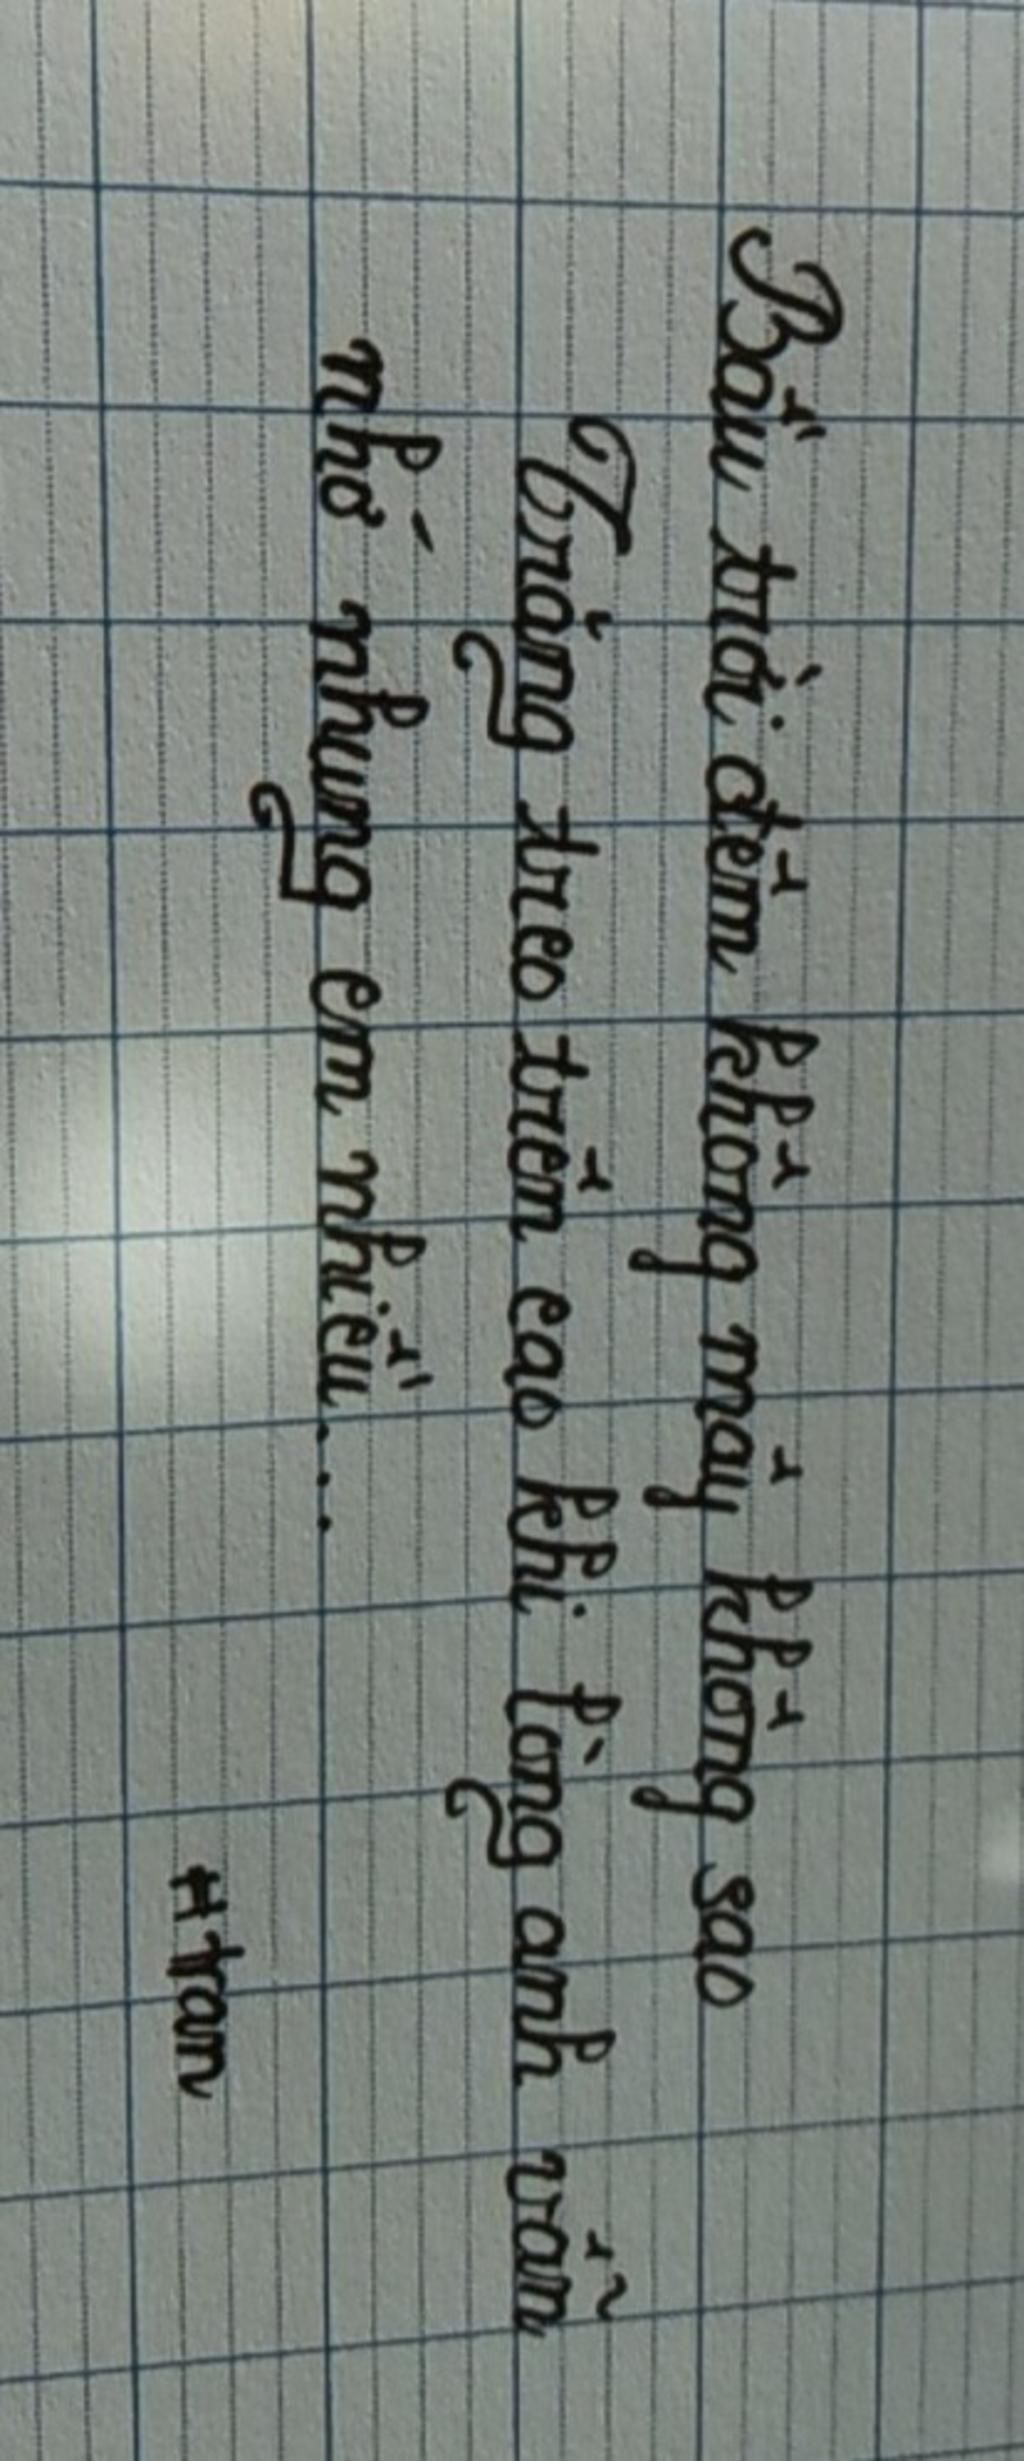 Bầu trời đêm không mây không sao
Trăng treo trên cao khi lòng anh vẫn
nhớ nhung em nhiều...
#tran